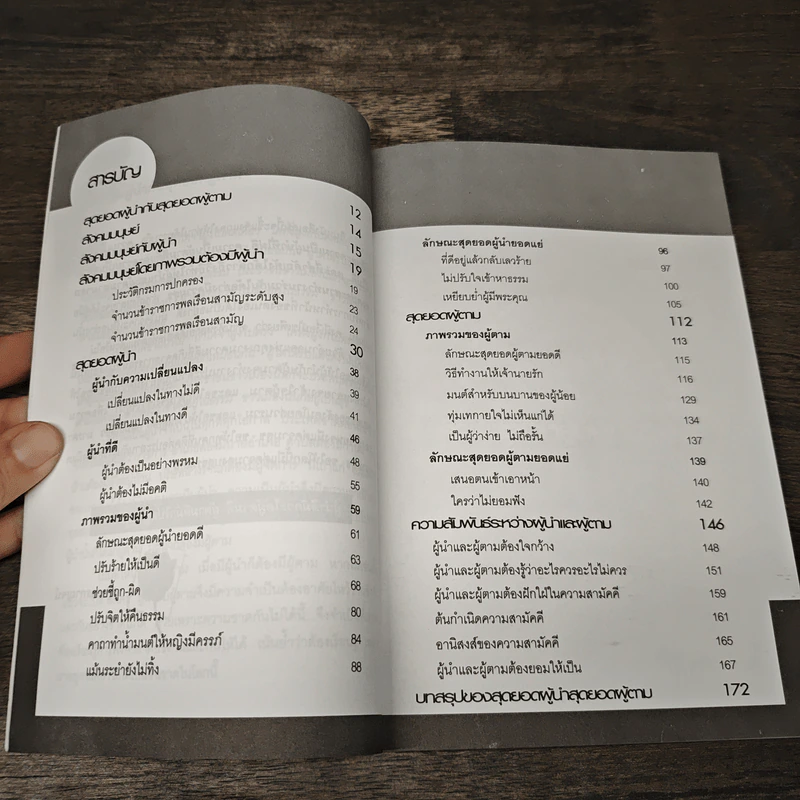 สารบัญ
สุดยอดผู้นำกับสุดยอดผู้ตาม 12
สังคมมนุษย์ 14
สังคมมนุษย์กับผู้นำ 15
สังคมมนุษย์โดยภาพรวมต้องมีผู้นำ 19
ประวัติกรมการปกครอง 19
จำนวนข้าราชการพลเรือนสามัญระดับสูง 23
จำนวนข้าราชการพลเรือนสามัญ 24
สุดยอดผู้นำ 30
ผู้นำกับความเปลี่ยนแปลง 38
เปลี่ยนแปลงในทางไม่ดี 39
เปลี่ยนแปลงในทางดี 41
ผู้นำที่ดี 46
ผู้นำต้องเป็นอย่างพรหม 48
ผู้นำต้องไม่มีอคติ 55
ภาพรวมของผู้นำ 59
ลักษณะสุดยอดผู้นำยอดดี 61
ปรับร้ายให้เป็นดี 63
ช่วยชี้ถูก-ผิด 68
ปรับจิตให้คืนธรรม 80
คาถาทำน้ำมนต์ให้หญิงมีครรภ์ 84
แม้นระยำยังไม่ทิ้ง 88
ลักษณะสุดยอดผู้นำยอดแย่ 96
ที่ดีอยู่แล้วกลับเลวร้าย 97
ไม่ปรับใจเข้าหาธรรม 100
เหยียบย่ำผู้มีพระคุณ 105
สุดยอดผู้ตาม 112
ภาพรวมของผู้ตาม 113
ลักษณะสุดยอดผู้ตามยอดดี 115
วิธีทำงานให้เจ้านายรัก 116
มนต์สำหรับบนบานของผู้น้อย 129
ทุ่มเทกายใจไม่เห็นแก่ได้ 134
เป็นผู้ว่าง่าย ไม่ถือรั้น 137
ลักษณะสุดยอดผู้ตามยอดแย่ 139
เสนอตนเข้าเอาหน้า 140
ใครว่าไม่ยอมฟัง 142
ความสัมพันธ์ระหว่างผู้นำและผู้ตาม 146
ผู้นำและผู้ตามต้องใจกว้าง 148
ผู้นำและผู้ตามต้องรู้ว่าอะไรควรอะไรไม่ควร 151
ผู้นำและผู้ตามต้องฝักใฝ่ในความสามัคคี 159
ต้นกำเนิดความสามัคคี 161
อานิสงส์ของความสามัคคี 165
ผู้นำและผู้ตามต้องยอมให้เป็น 167
บทสรุปของสุดยอดผู้นำสุดยอดผู้ตาม 172